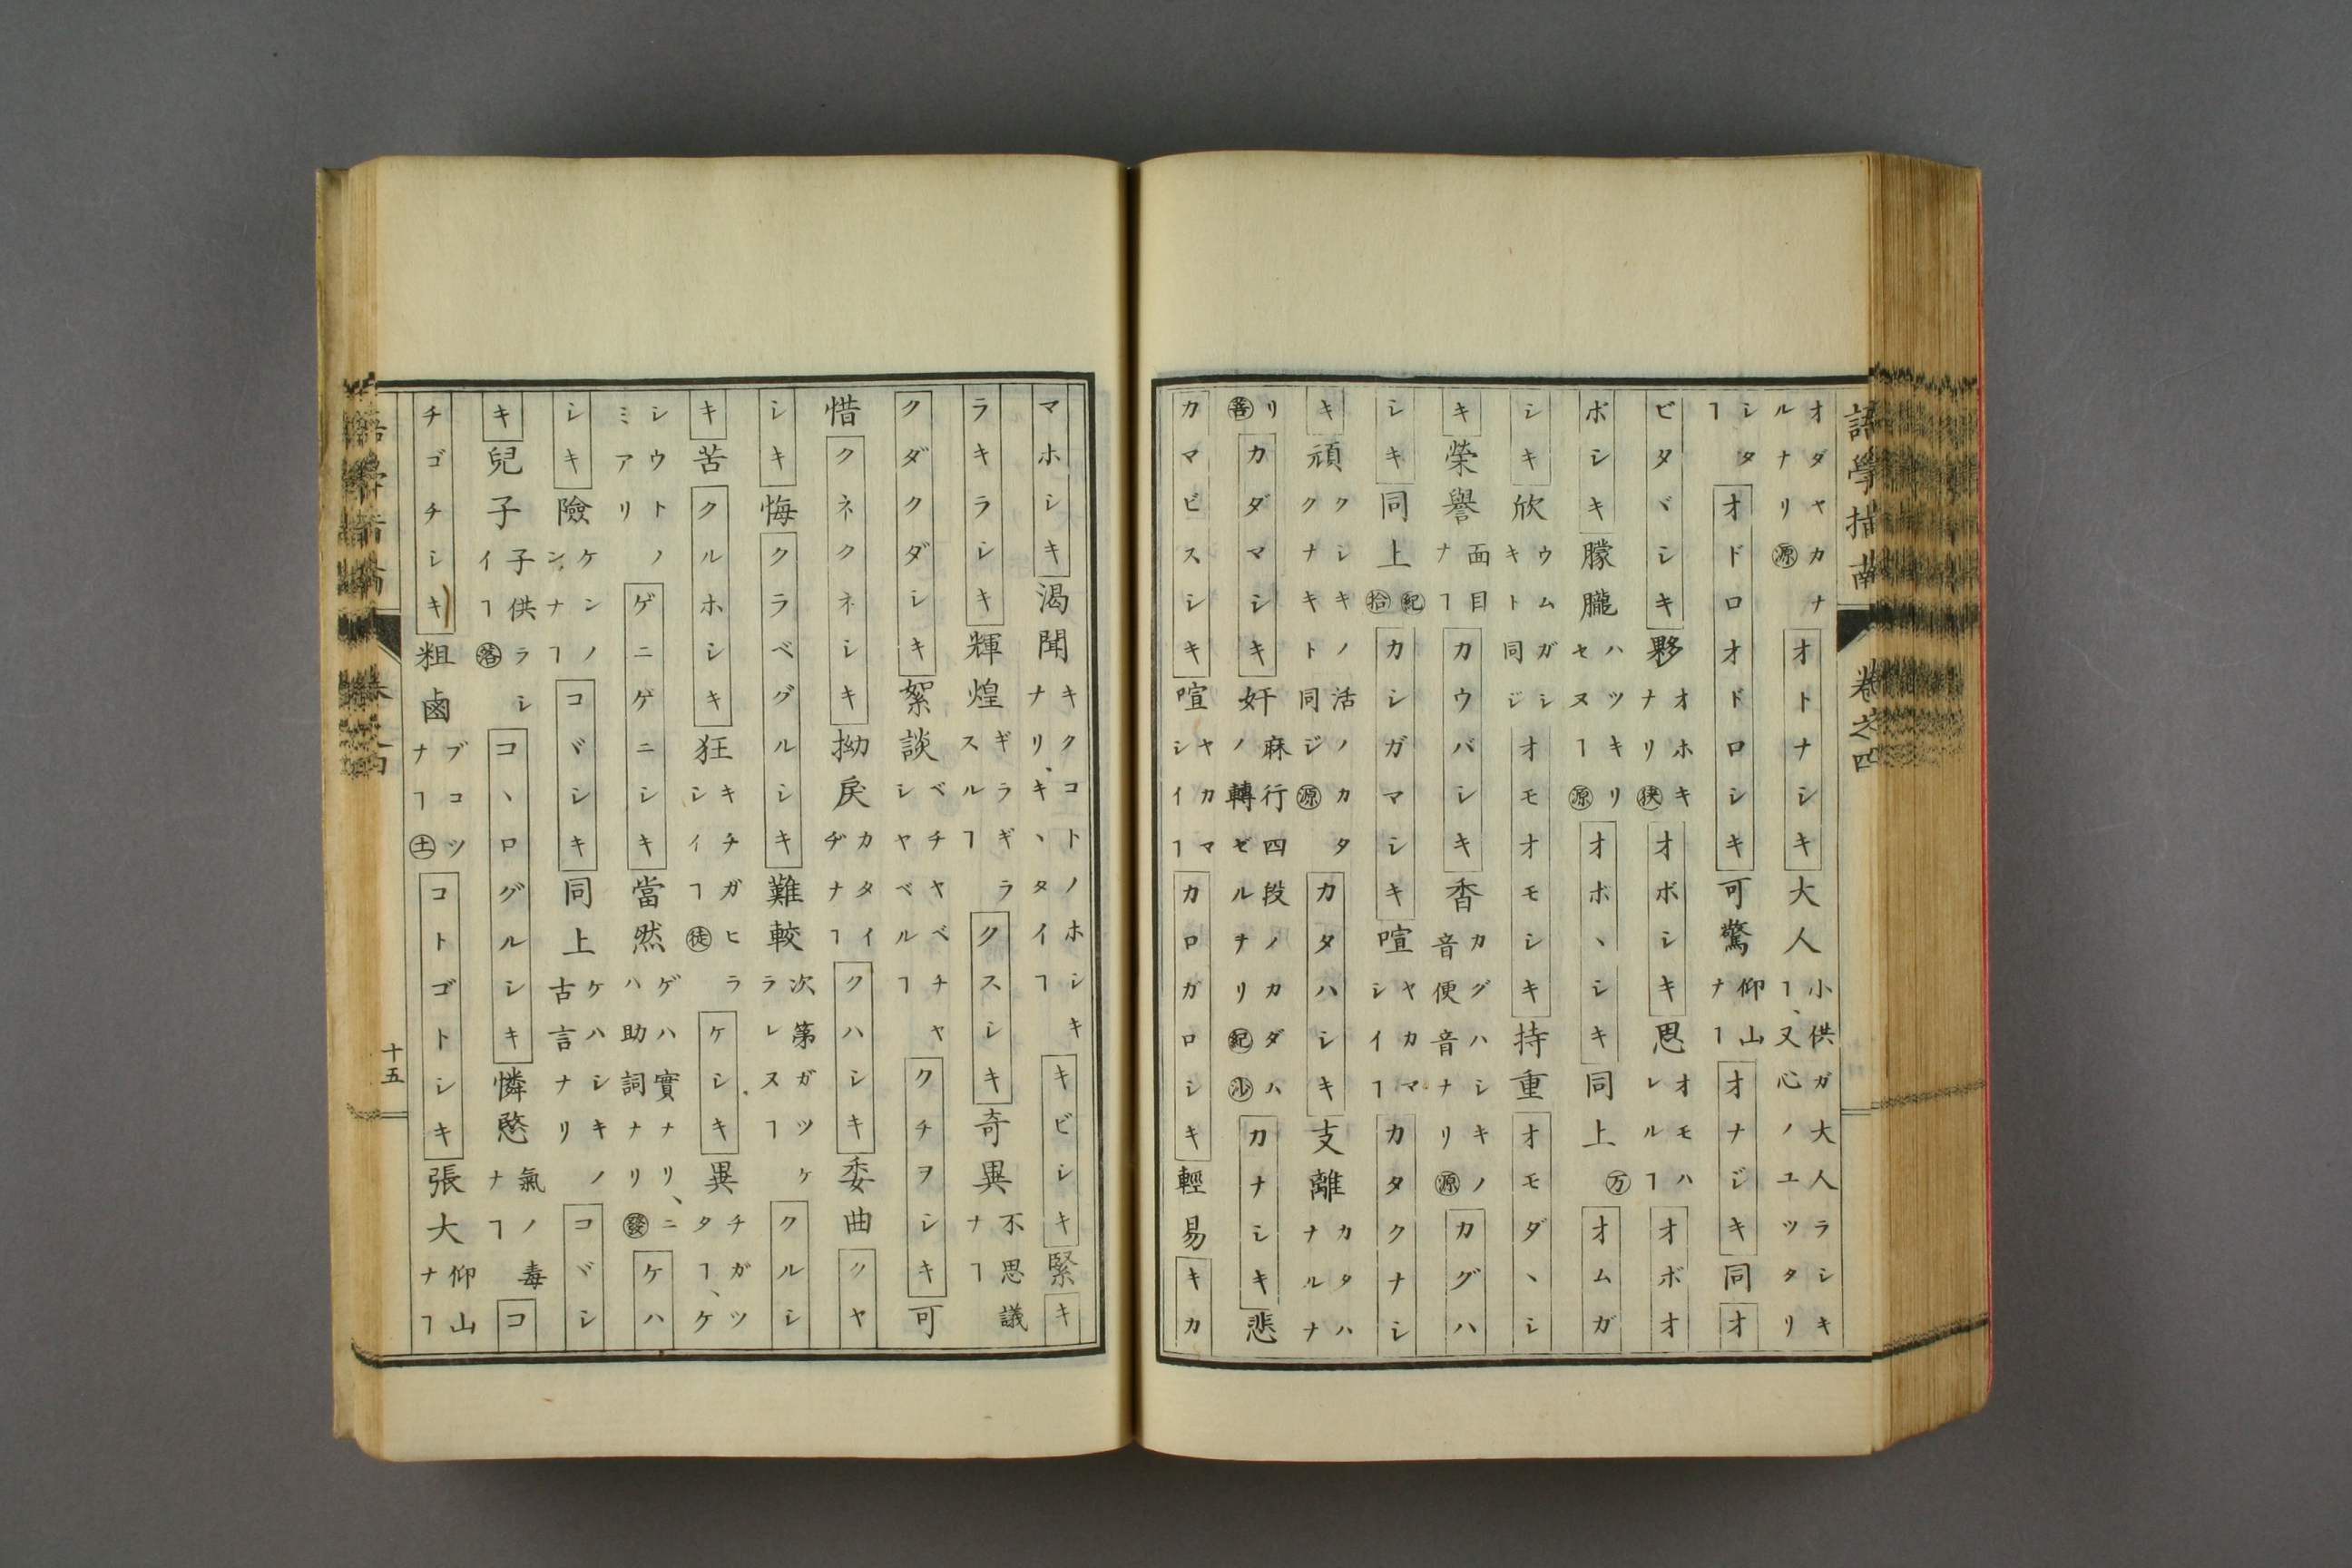 語學指南 卷之四
オダヤカナルナリ源オトナシキ大人小供ガ大人ラシキヿ、又心ノユツタリ
シタヿオドロオドロシキ可驚仰山ナヿオナジキ同オ
ビタヾシキ夥オホキナリ狭オボシキ思オモハレルヿオボオ
ボシキ朦朧ハツキリセヌヿ源オボヽシキ同上万オムガ
シキ欣ウムガシキト同ジオモオモシキ持重オモダヽシ
キ榮譽面目ナヿカウバシキ香カグハシキノ音便音ナリ源カグハ
シキ同上紀拾カシガマシキ喧ヤカマシイヿカタクナシ
キ頑クシキノ活ノカタクナキト同ジ源カタハシキ支離カタハナルナ
リ著カダマシキ奸麻行四段ノカダハノ轉ゼルナリ紀沙カナシキ悲
カマビスシキ喧ヤカマシイヿカロガロシキ輕易キカ
マホシキ渇聞キクコトノホシキナリ、キヽタイヿキビシキ緊キ
ラキラシキ輝煌ギラギラスルヿクスシキ奇異不思議ナヿ
クダクダシキ絮談ベチヤベチヤシヤベルヿクチヲシキ可
惜クネクネシキ拗戾カタイヂナヿクハシキ委曲クヤ
シキ悔クラベグルシキ難較次第ガツケラレヌヿクルシ
キ苦クルホシキ狂キチガヒラシイヿ徒ケシキ異チガツタヿ、ケ
シウトノミアリゲニゲニシキ當然ゲハ實ナリ、ニハ助詞ナリ發ケハ
シキ險ケンノンナヿコヾシキ同上ケハシキノ古言ナリコヾシ
キ兒子子供ラシイヿ落コヽログルシキ憐愍氣ノ毒ナヿコ
チゴチシキ粗鹵ブコツナヿ土コトゴトシキ張大仰山ナヿ
十五